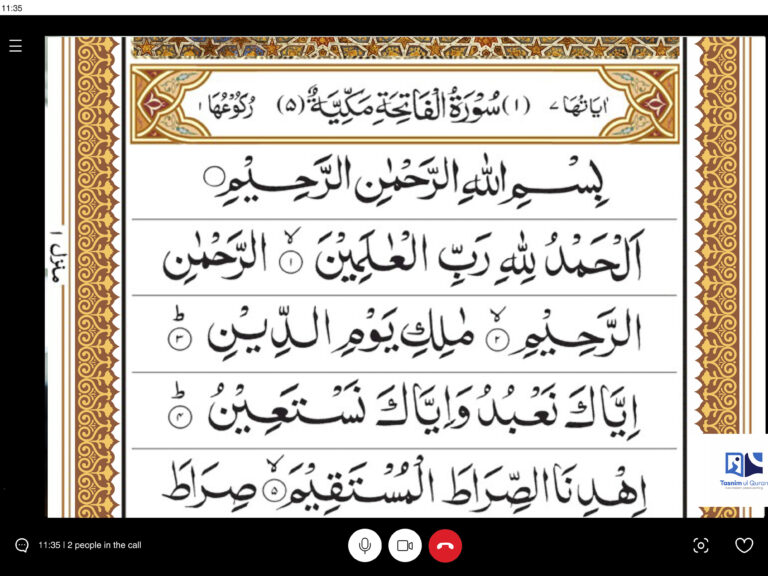 11:35
اٰیَاتُهَا ٧ (١) سُوْرَةُ الْفَاتِحَةِ مَکِّیَّةٌ (٥) رُكُوْعُهَا ١
بِسْمِ اللّٰهِ الرَّحْمٰنِ الرَّحِیْمِ
اَلْحَمْدُ لِلّٰهِ رَبِّ الْعٰلَمِیْنَ ۙ ١ الرَّحْمٰنِ
الرَّحِیْمِ ۙ ٢ مٰلِكِ یَوْمِ الدِّیْنِ ؕ ٣
اِیَّاكَ نَعْبُدُ وَاِیَّاكَ نَسْتَعِیْنُ ؕ ۴
اِهْدِنَا الصِّرَاطَ الْمُسْتَقِیْمَ ۙ ۵ صِرَاطَ
منزل ١
Tasnim ul Quran
11:35 | 2 people in the call